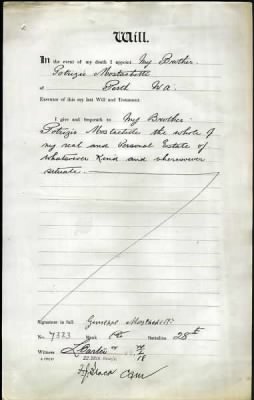 Will.
In the event of my death I appoint My Brother.
Patrizio Mostachetti
of Perth W.A.
Executor of this my last Will and Testament.
I give and bequeath to My Brother:
Patrizio Mostachetti the whole of
my real and Personal Estate of
whatsoever Kind and wheresoever
situate.
Signature in full Mostachetti
No. 7323 Rank Pte Battalion 28th
Witness